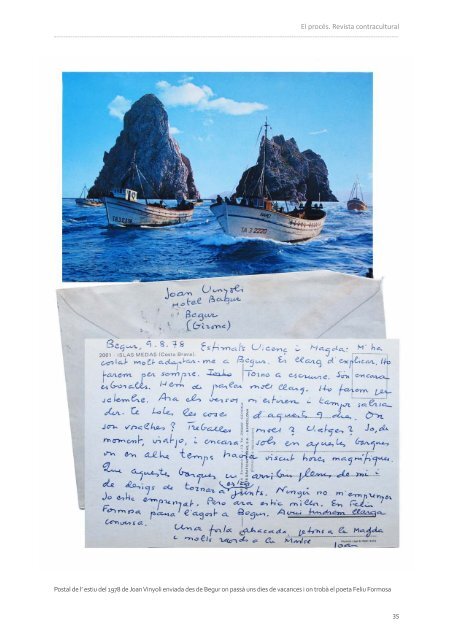 El procés. Revista contracultural
TA 3 2220
Joan Vinyoli
Hotel Bagur
Begur
(Girona)
Begur, 9.8.78 Estimats Vicenç i Magda: M'ha
2001 - ISLAS MEDAS (Costa Brava).
costat molt adaptar-me a Begur. Es llarg d'explicar. Ho
farem per sempre. Torno a escriure. Són encara
esborralls. Hem de parlar molt llarg. Ho farem per
setembre. Ara els versos, m'estiren i tampoc sabria
dir-te totes les coses d'aquests 9 dies. On
són vosaltres? Treballes molt? Viatges? Jo, de
moment, viatjo, i encara sols en aquestes barques
on en altre temps havia viscut hores magnífiques.
Que aquestes barques arribin plenes de mi i
de desigs de tornar a junts. Ningú no m'emprenyer
Jo estic emprenyat. Però ara estic millor. En Feliu
Formosa passa l'agost a Begur. Avui tindrem llarga
conversa.
Una forta abraçada, petons a la Magda
i molts records a la
Joan
Postal de l'estiu del 1978 de Joan Vinyoli enviada des de Begur on passà uns dies de vacances i on trobà el poeta Feliu Formosa
35